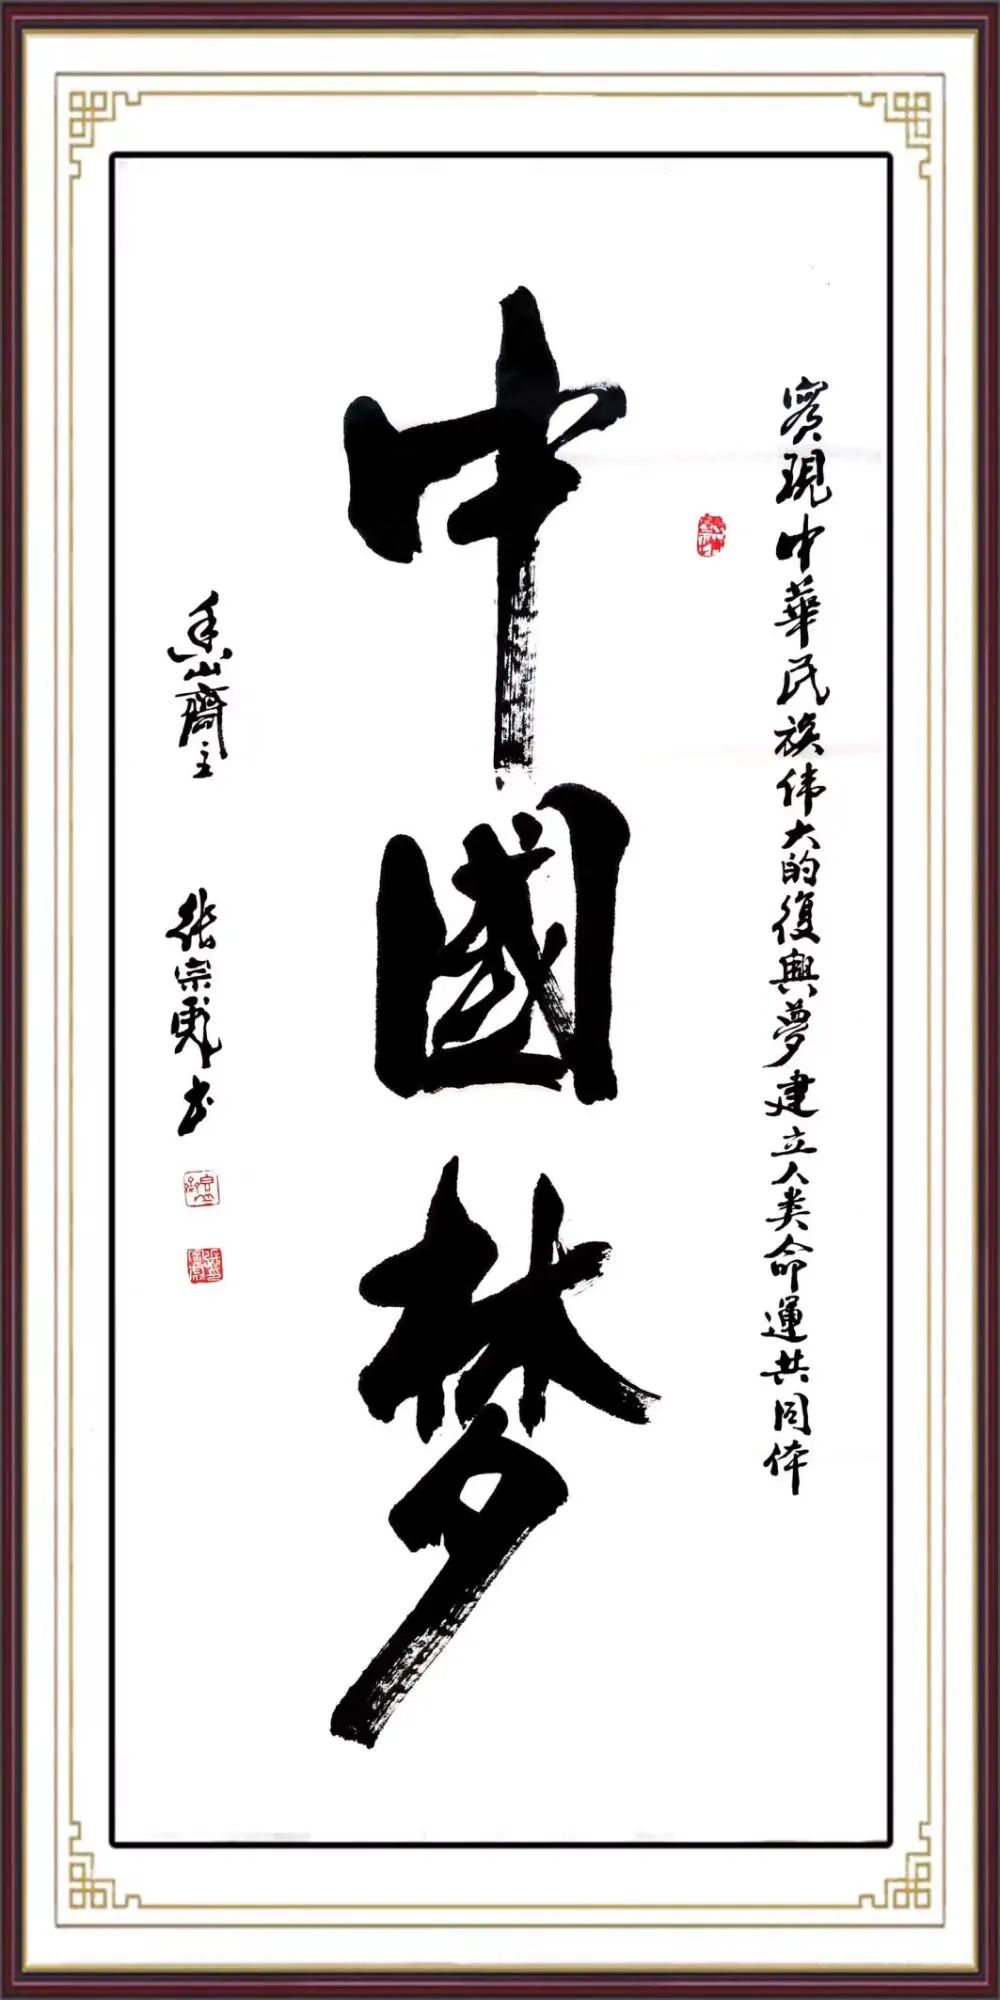 實現中華民族伟大的復興夢建立人类命運共同体
中國梦
香山齋主 張宗彪书